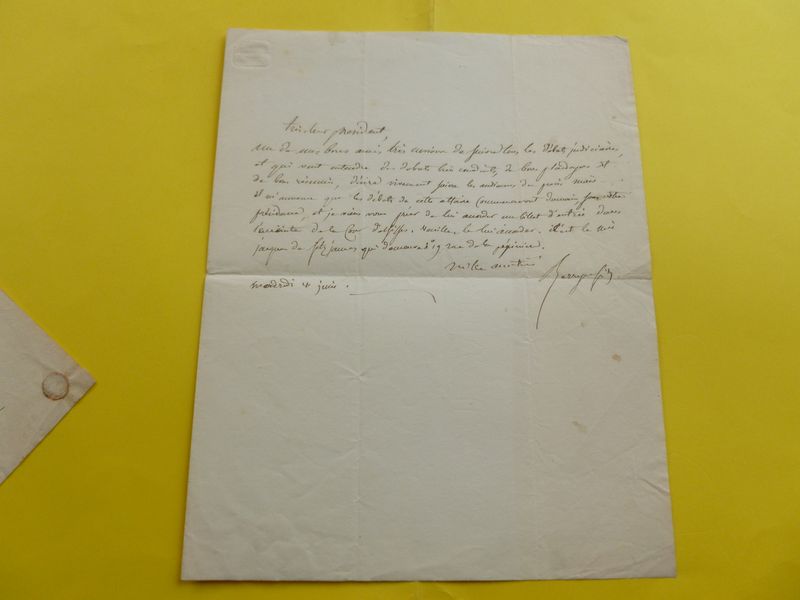 très cher président,
un de mes bons amis, très curieux de suivre les débats judiciaires,
et qui veut entendre des débats bien conduits, de bons plaidoyers et
de bons résumés, désire vivement suivre les audiences de
il m'annonce que les débats de cette affaire commenceront demain sous votre
présidence, et je viens vous prier de lui accorder un billet d'entrée dans
l'enceinte de la Cour d'assises. veuillez le lui accorder. C'est le
jacques de fitz james qui demeure 19 rue de la pépinière.
mille amitiés
Berryer fils
mercredi 4 juin.